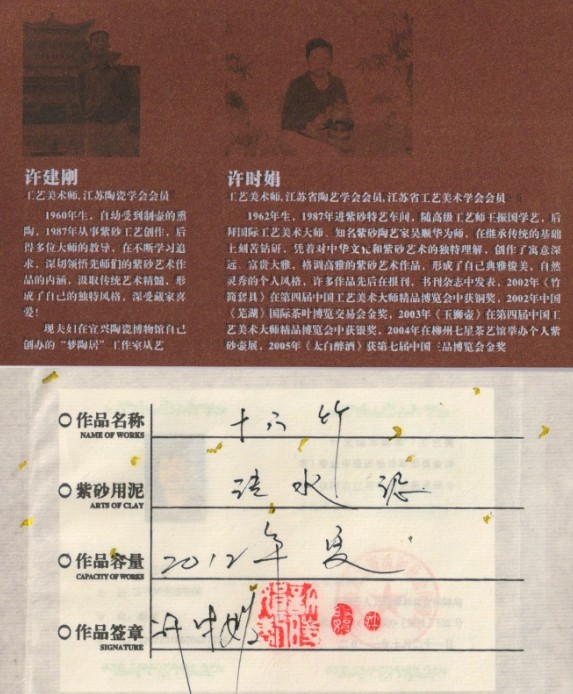 许建刚
工艺美术师,江苏陶瓷学会会员
1960年生，自幼受到制壶的熏
陶，1987年从事紫砂工艺创作，后
得多位大师的教导，在不断学习追
求，深切领悟先师们的紫砂艺术作
品的内涵，汲取传统艺术精髓，形
成了自己的独特风格，深受藏家喜
爱！
现夫妇在宜兴陶瓷博物馆自己
创办的“梦陶居”工作室从艺
许时娟
工艺美术师,江苏省陶艺学会会员,江苏省工艺美术学会会员
1962年生，1987年进紫砂特艺车间，随高级工艺师王振国学艺，后
拜国际工艺美术大师、知名紫砂陶艺家吴顺华为师，在继承传统的基础
上刻苦钻研，凭着对中华文化和紫砂艺术的独特理解，创作了寓意深
远、富贵大雅，格调高雅的紫砂艺术作品，形成了自己典雅俊美，自然
灵秀的个人风格，许多作品先后在报刊、书刊杂志中发表，2002年《竹
简套具》在第四届中国工艺美术大师精品博览会中获铜奖，2002年中国
《芜湖》国际茶叶博览交易会金奖，2003年《玉狮壶》在第四届中国工
艺美术大师精品博览会中获银奖，2004年在柳州七星茶艺馆举办个人紫
砂壶展，2005年《太白醉酒》获第七届中国三品博览会金奖
作品名称 十六竹
NAME OF WORKS
紫砂用泥 清水泥
ARTS OF CLAY
作品容量 2012年夏
CAPACITY OF WORKS
作品签章 许时娟
SIGNATURE